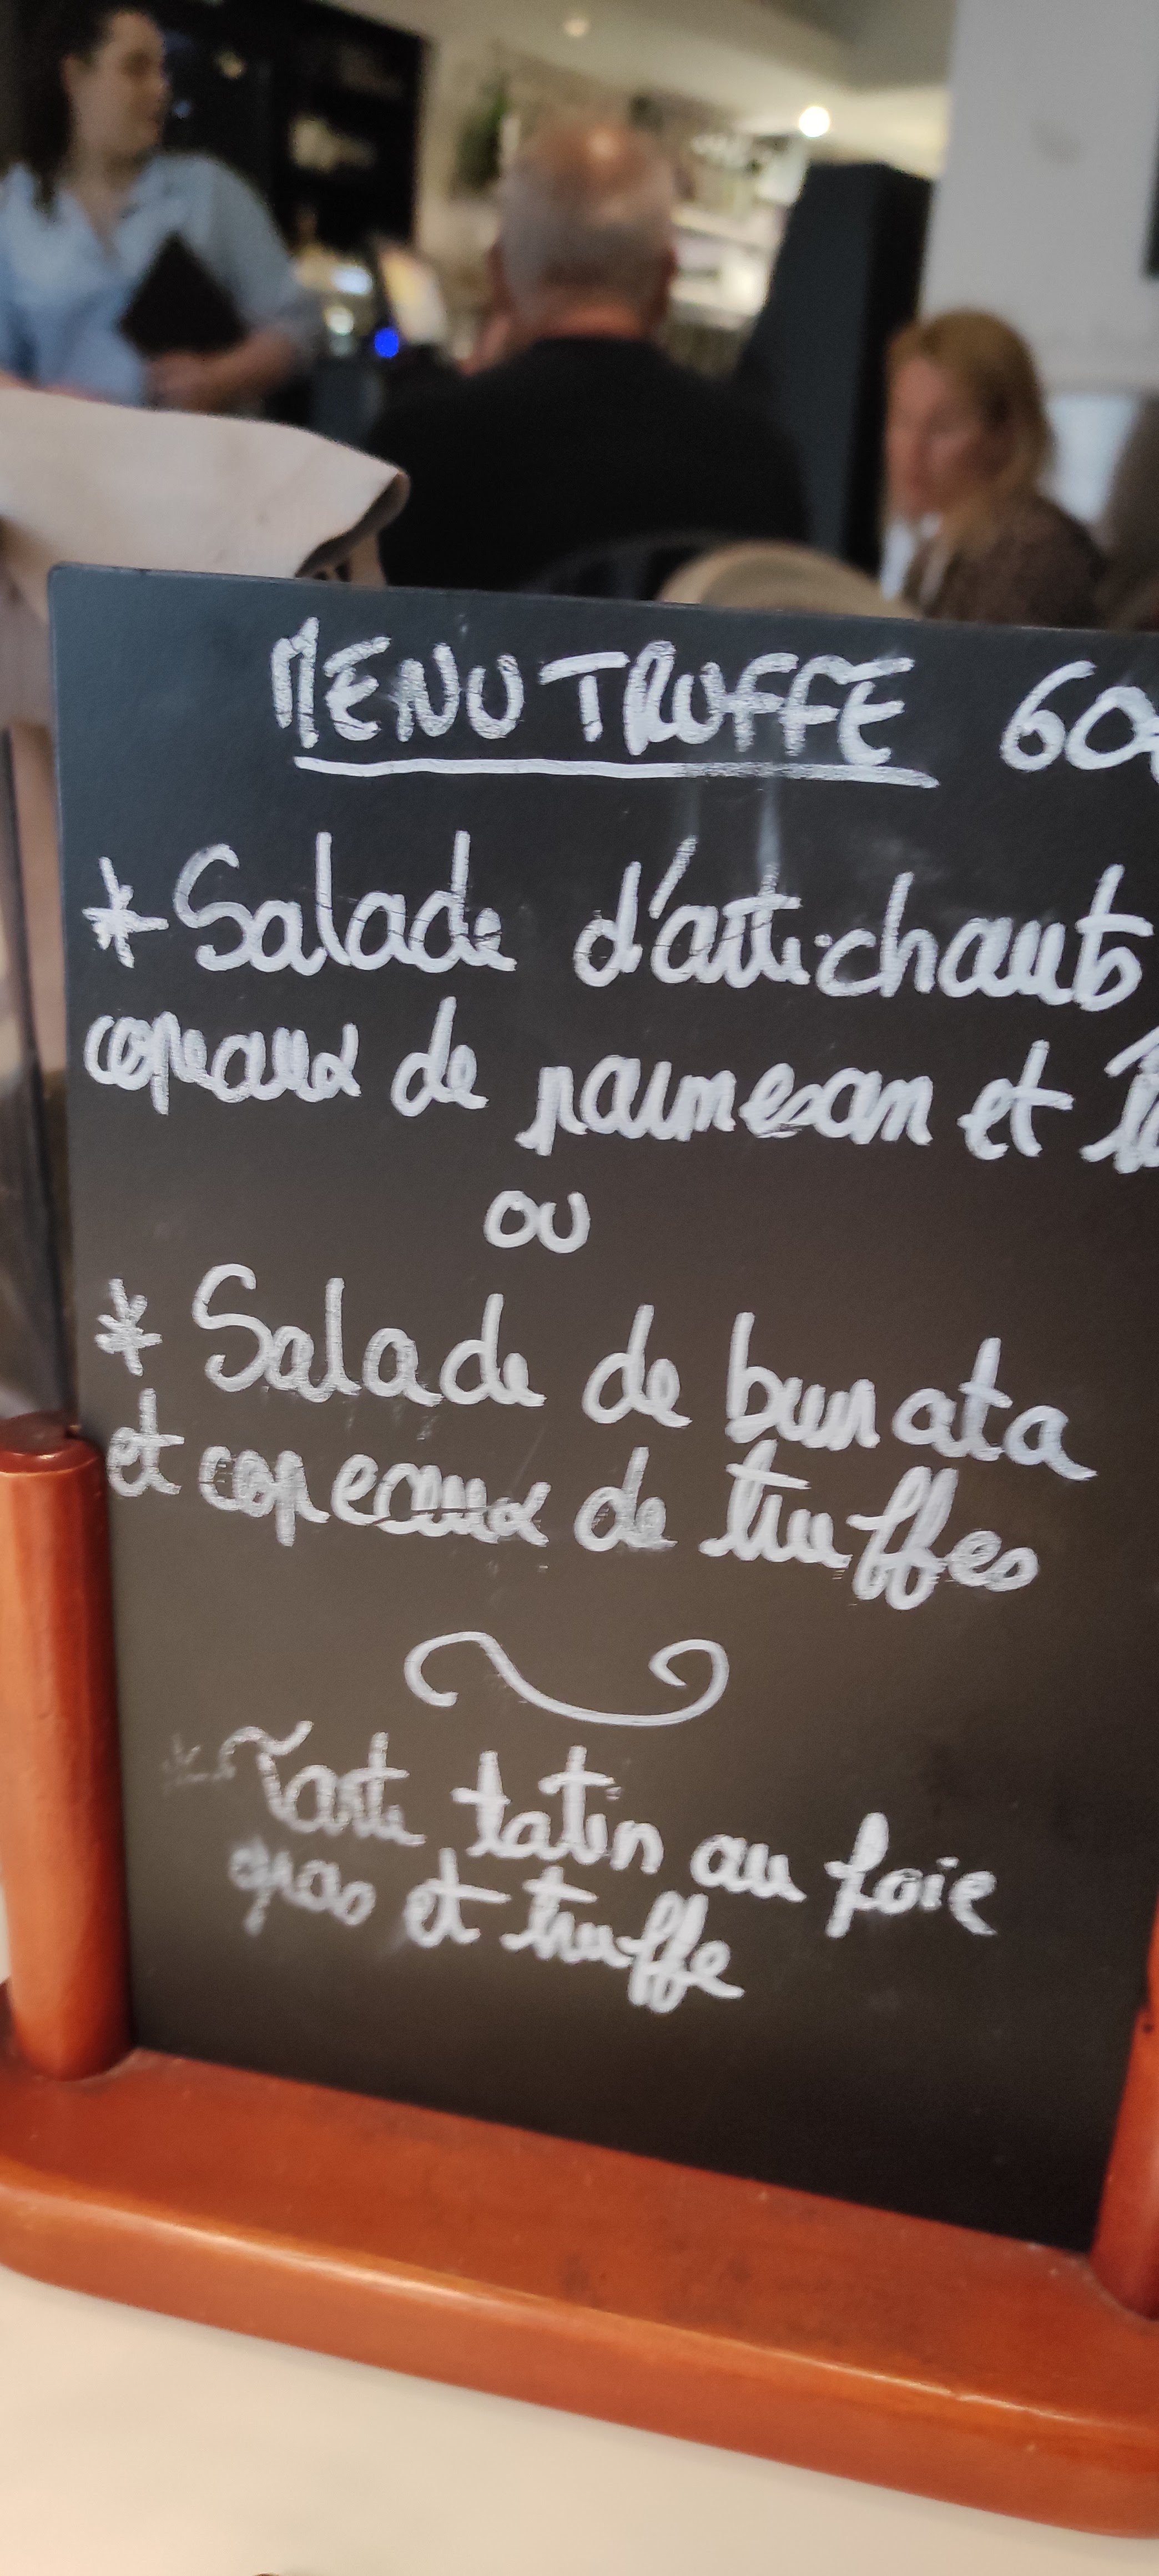 MENU TRUFFE 60€
* Salade d'artichauts
copeaux de parmesan et
ou
* Salade de burrata
et copeaux de truffes
* Tarte tatin au foie
gras et truffe